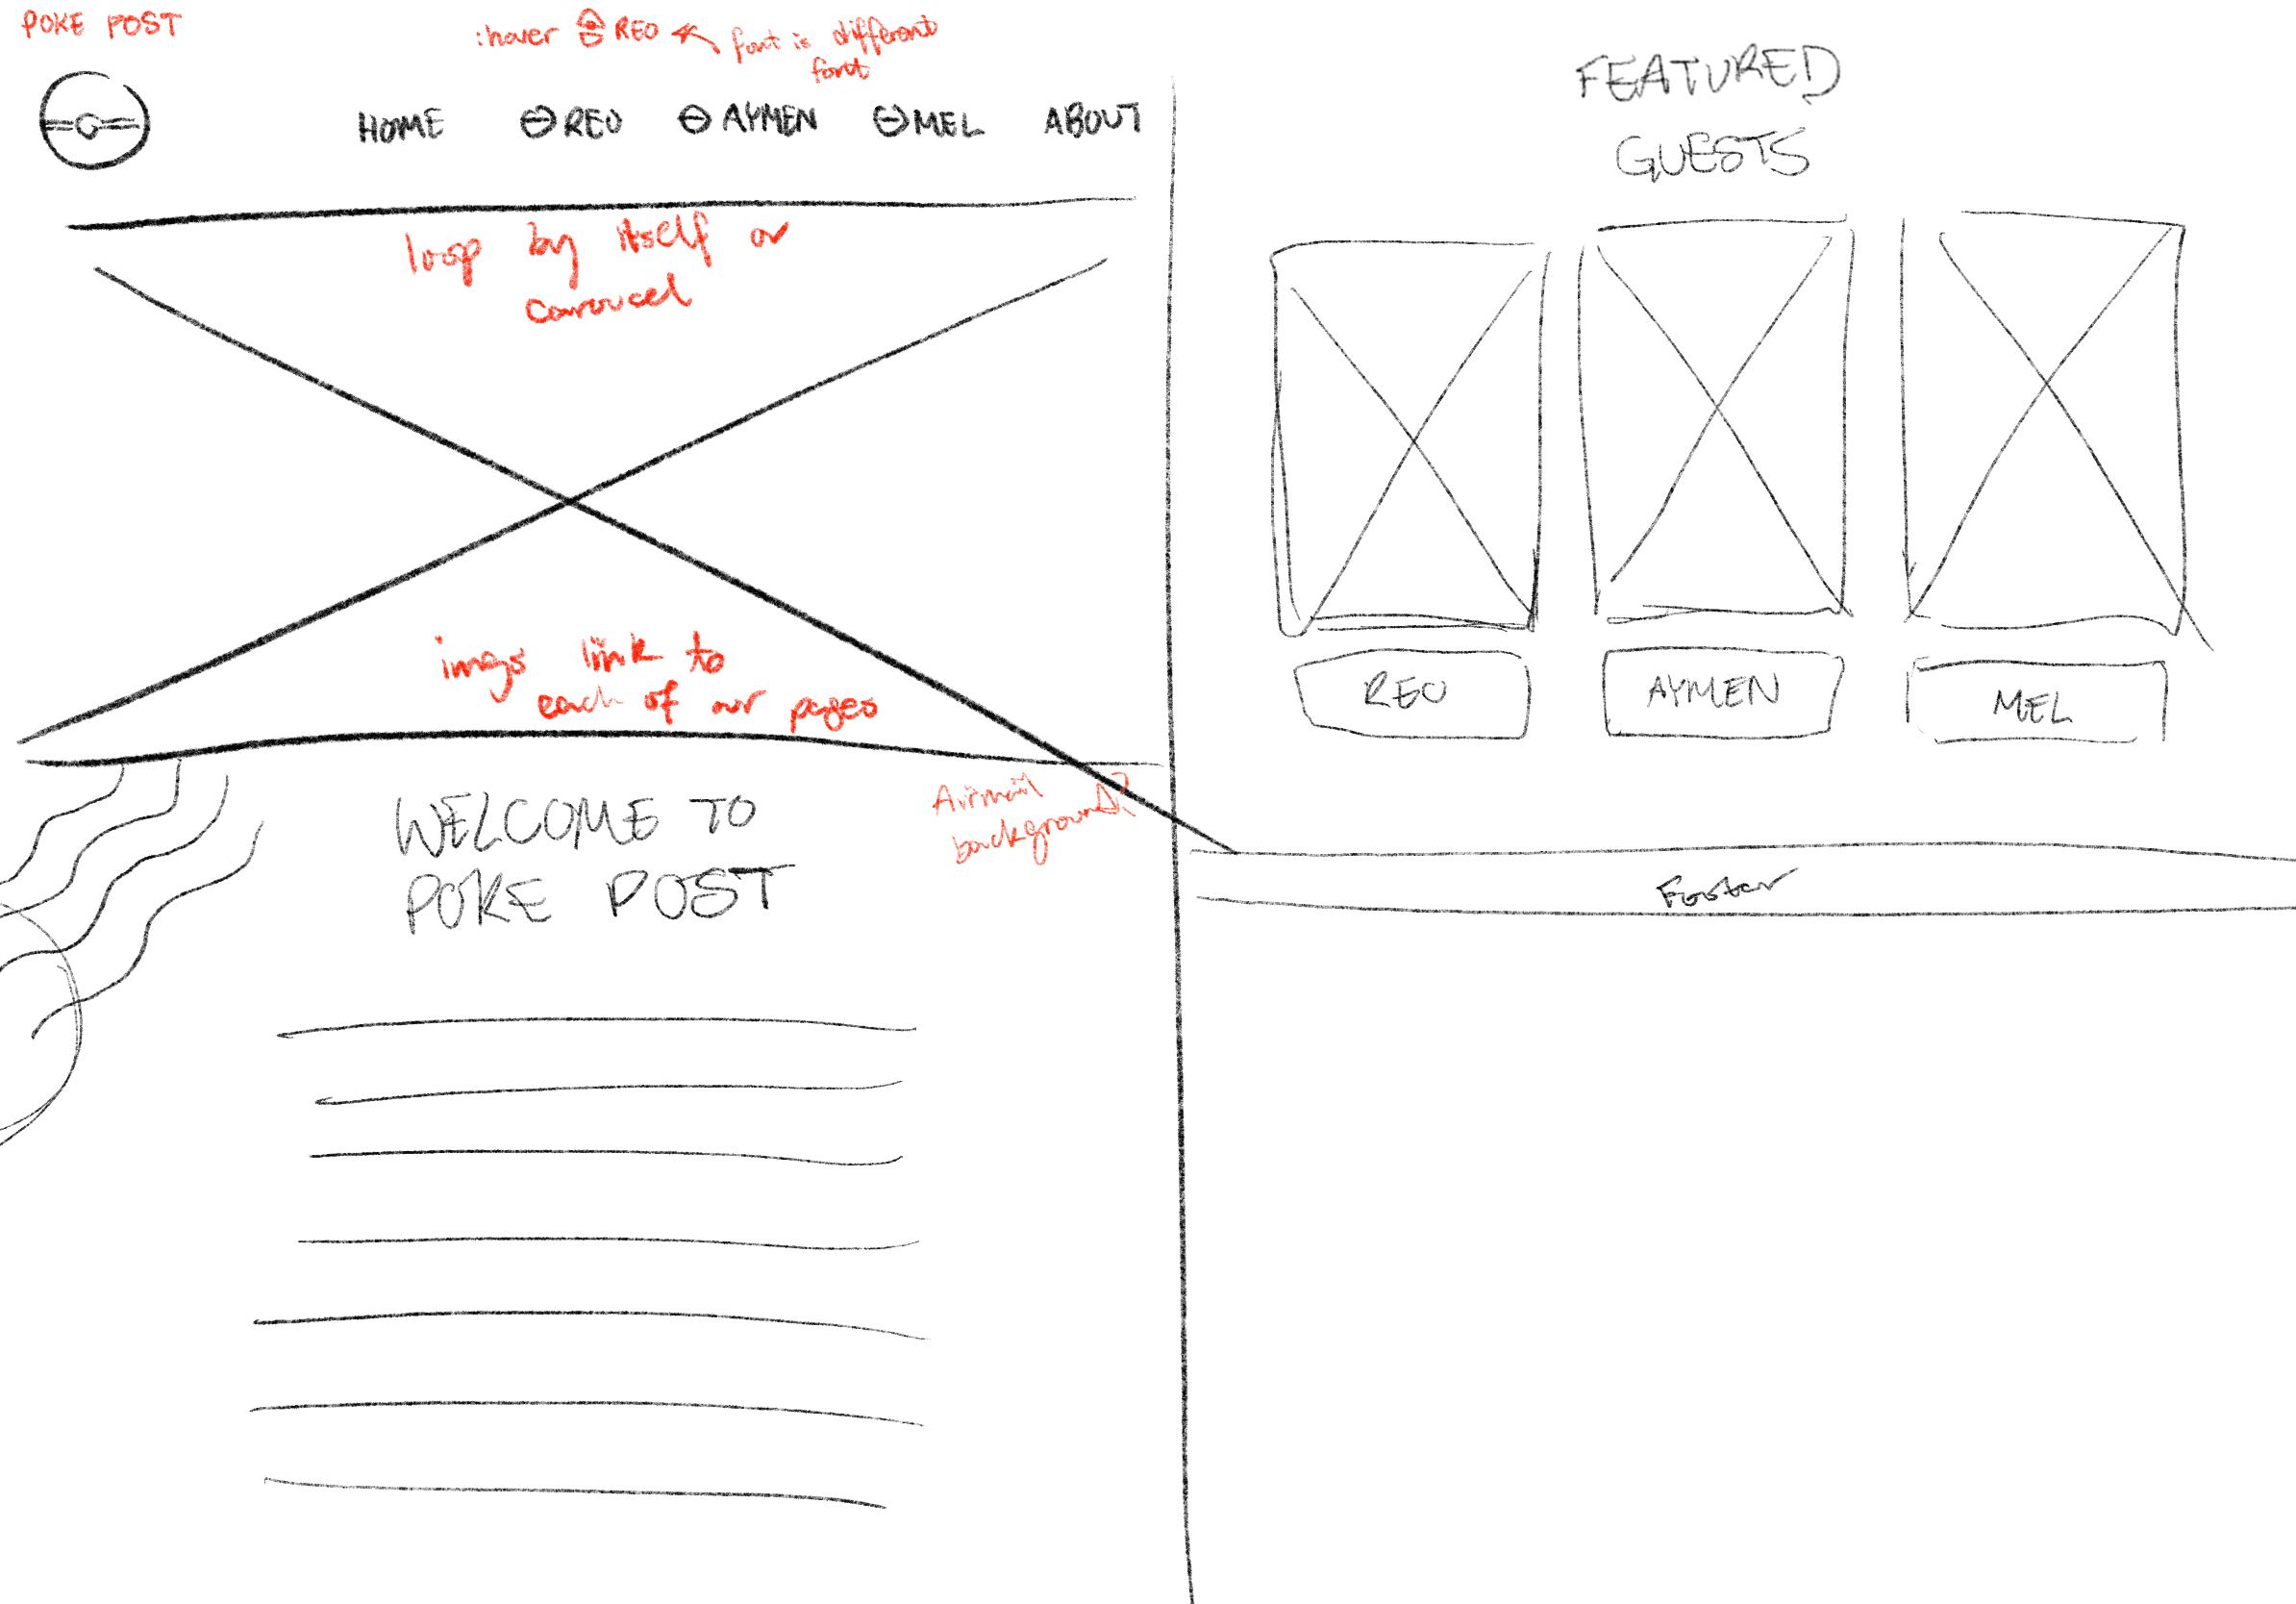 POKE POST
:hover REO font is different
font
HOME REO AYMEN MEL ABOUT
loop by itself or
carousel
imags link to
each of our pages
WELCOME TO
POKE POST
Airmail
background?
FEATURED
GUESTS
REO AYMEN MEL
Footer